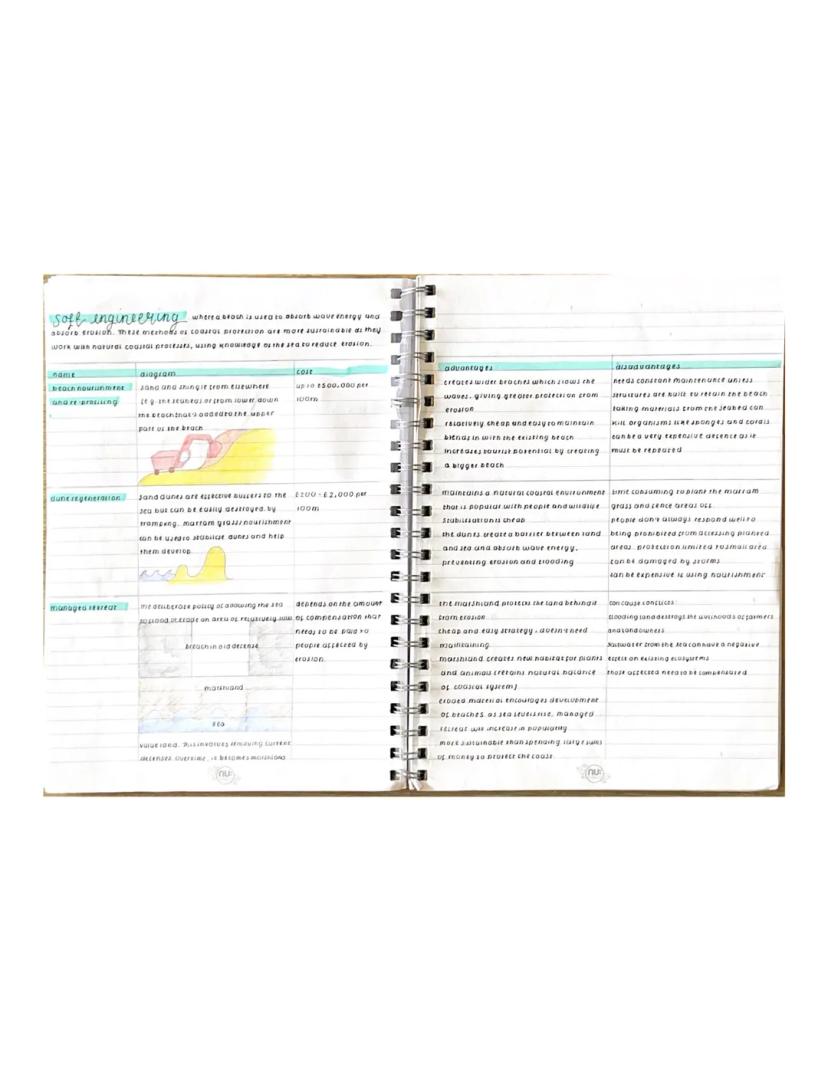 soft engineering where a beach is used to absorb wave energy and
absorb erosion. These methods of coastal protection are more sustainable as they
work with natural coastal processes, using knowledge of the sea to reduce erosion.
name
diagram
cost
beach nourishment
and re-profiling
sand and shingle from elsewhere
(e.g. the seabed or from lower down
the beach) that's added to the upper
part of the beach
up to £500,000 per
100m
dune regeneration
sand dunes are effective buffers to the
sea but can be easily destroyed by
trampling. marram grass nourishment
can be used to stabilise dunes and help
them develop
£200 - £2,000 per
100m
managed retreat
the deliberate policy of allowing the sea
to flood or erode an area of relatively low
breach in old defense
marshland
sea
value land. This involves removing current
defenses overtime, it becomes marshland
depends on the amount
of compensation that
needs to be paid to
people affected by
erosion.
nu:
advantages
disadvantages
creates wider beaches which slows the
waves, giving greater protection from
erosion
relatively cheap and easy to maintain
blends in with the existing beach
increases tourist potential by creating
a bigger beach
needs constant maintenance unless
structures are built to retain the beach
taking materials from the seabed can
kill organisms like sponges and corals
can be a very expensive defence as it
must be repeated
maintains a natural coastal environment
that is popular with people and wildlife
stabilisation is cheap
the dunes create a barrier between land
and sea and absorb wave energy,
preventing erosion and flooding
time consuming to plant the marram
grass and fence areas off
people don't always respond well to
being prohibited from accessing planted
areas. protection limited to small area
can be damaged by storms
can be expensive is using nourishment
the marshland protects the land behind it
from erosion
cheap and easy strategy, doesn't need
maintaining
marshland creates new habitat for plants
and animals (retains natural balance
of coastal system)
eroded material encourages development
of beaches. as sea levels rise, managed
retreat will increase in popularity
more sustainable than spending large sums
of money to protect the coast
can cause conflicts:
flooding land destroys the livelihoods of farmers
and landowners
saltwater from the sea can have a negative
effect on existing ecosystems
those affected need to be compensated
nu: